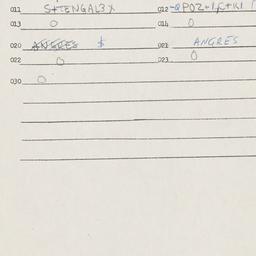 011 012
013 0 014 0
020 ANGRES $ 021 ANGRES
022 0 023 0
030 0